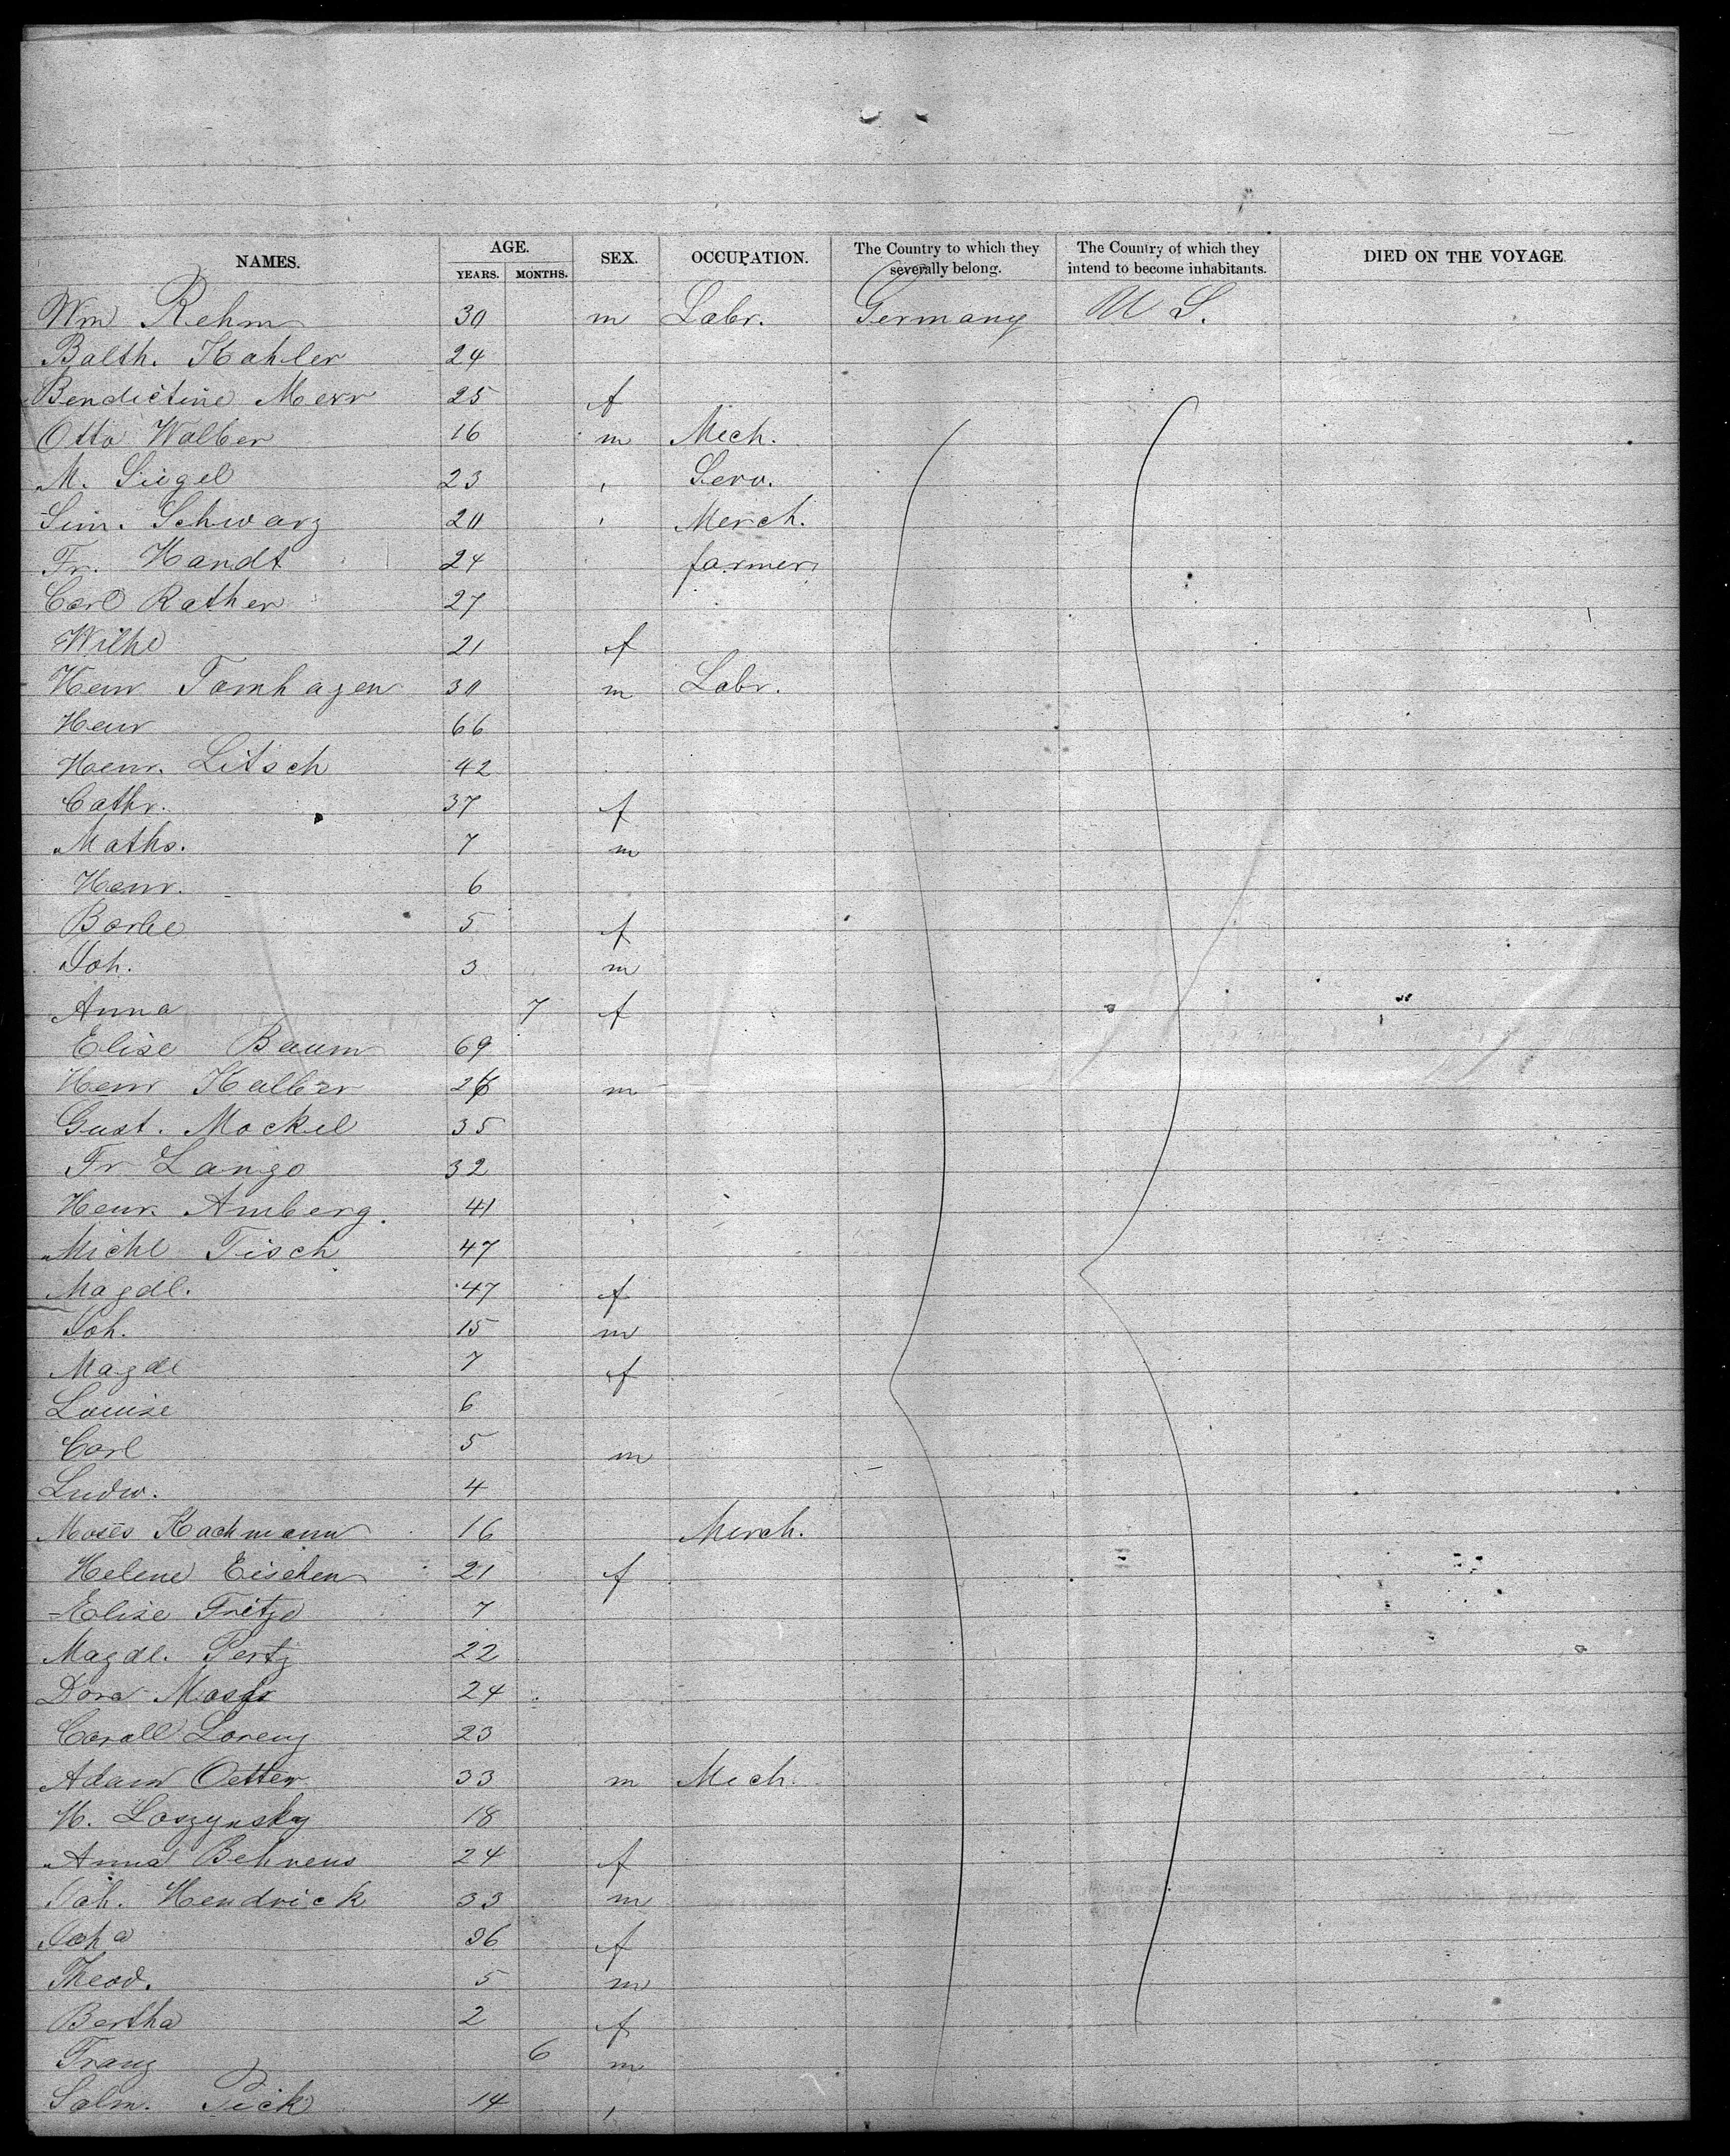 NAMES. AGE. SEX. OCCUPATION. The Country to which they severally belong. The Country of which they intend to become inhabitants. DIED ON THE VOYAGE
YEARS. MONTHS.
Wm Rehm 30 m Labr. Germany U S.
Balth. Kahler 24
Bendictine Merr 25 f
Otto Walber 16 m Mech.
M. Siegel 23 Serv.
Sim. Schwarz 20 Merch.
Fr. Handt 24 farmer
Carl Rather 27
Wilhe 21 f
Henr Tornhagen 30 m Labr.
Henr 66
Henr. Litsch 42
Cathr. 37 f
Maths. 7 m
Henr. 6
Barbe 5 f
Joh. 3 m
Anna 7 f
Elise Baum 69
Henr Kalber 26 m
Gust. Mockel 35
Fr Lango 32
Henr. Amberg. 41
Michl Tisch 47
Magdl. 47 f
Joh. 15 m
Magdl 7 f
Louise 6
Carl 5 m
Ludw. 4
Moses Kachmann 16 Merch.
Helene Eischen 21 f
Elise Fritze 7
Magdl. Pertz 22
Dora 24
Carall Lorenz 23
Adam Oetter 33 m Mech.
H. Loszynsky 18
Anna Behrens 24 f
Joh. Hendrick 33 m
Joha 36 f
Theod. 5 m
Bertha 2 f
Franz 6 m
Salm. Pick 14